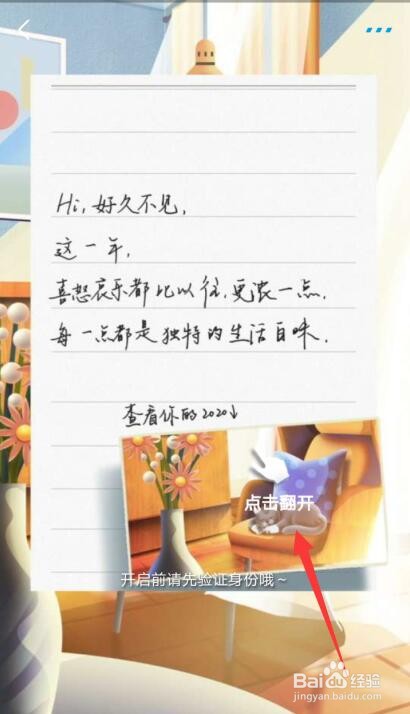 Hi,好久不见,
这一年,
喜怒哀乐都比以往,更浓一点.
每一点都是独特的生活百味.
查看你的2020↓
点击翻开
开启前请先验证身份哦~
Baidu经验
jingyan.baidu.com